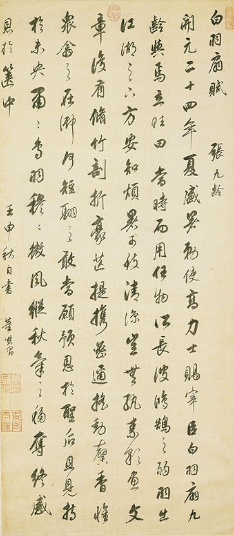 白羽扇賦 張九齡
開元二十四年夏盛暑勑使高力士賜宰臣白羽扇九
齡與焉立賦曰當時而用任物所長彼鴻鵠之弱羽出
江湖之下方安知煩暑可致清涼豈無紈素彩畫文
章復有脩竹剖析毫芒提攜密邇搖動馨香惟
衆珍之在御何短翮之敢當顧恩於聖后且見持
於未央肅肅白羽穆穆微風縱秋氣之移奪終感
恩於篋中 壬申秋日書 董其昌